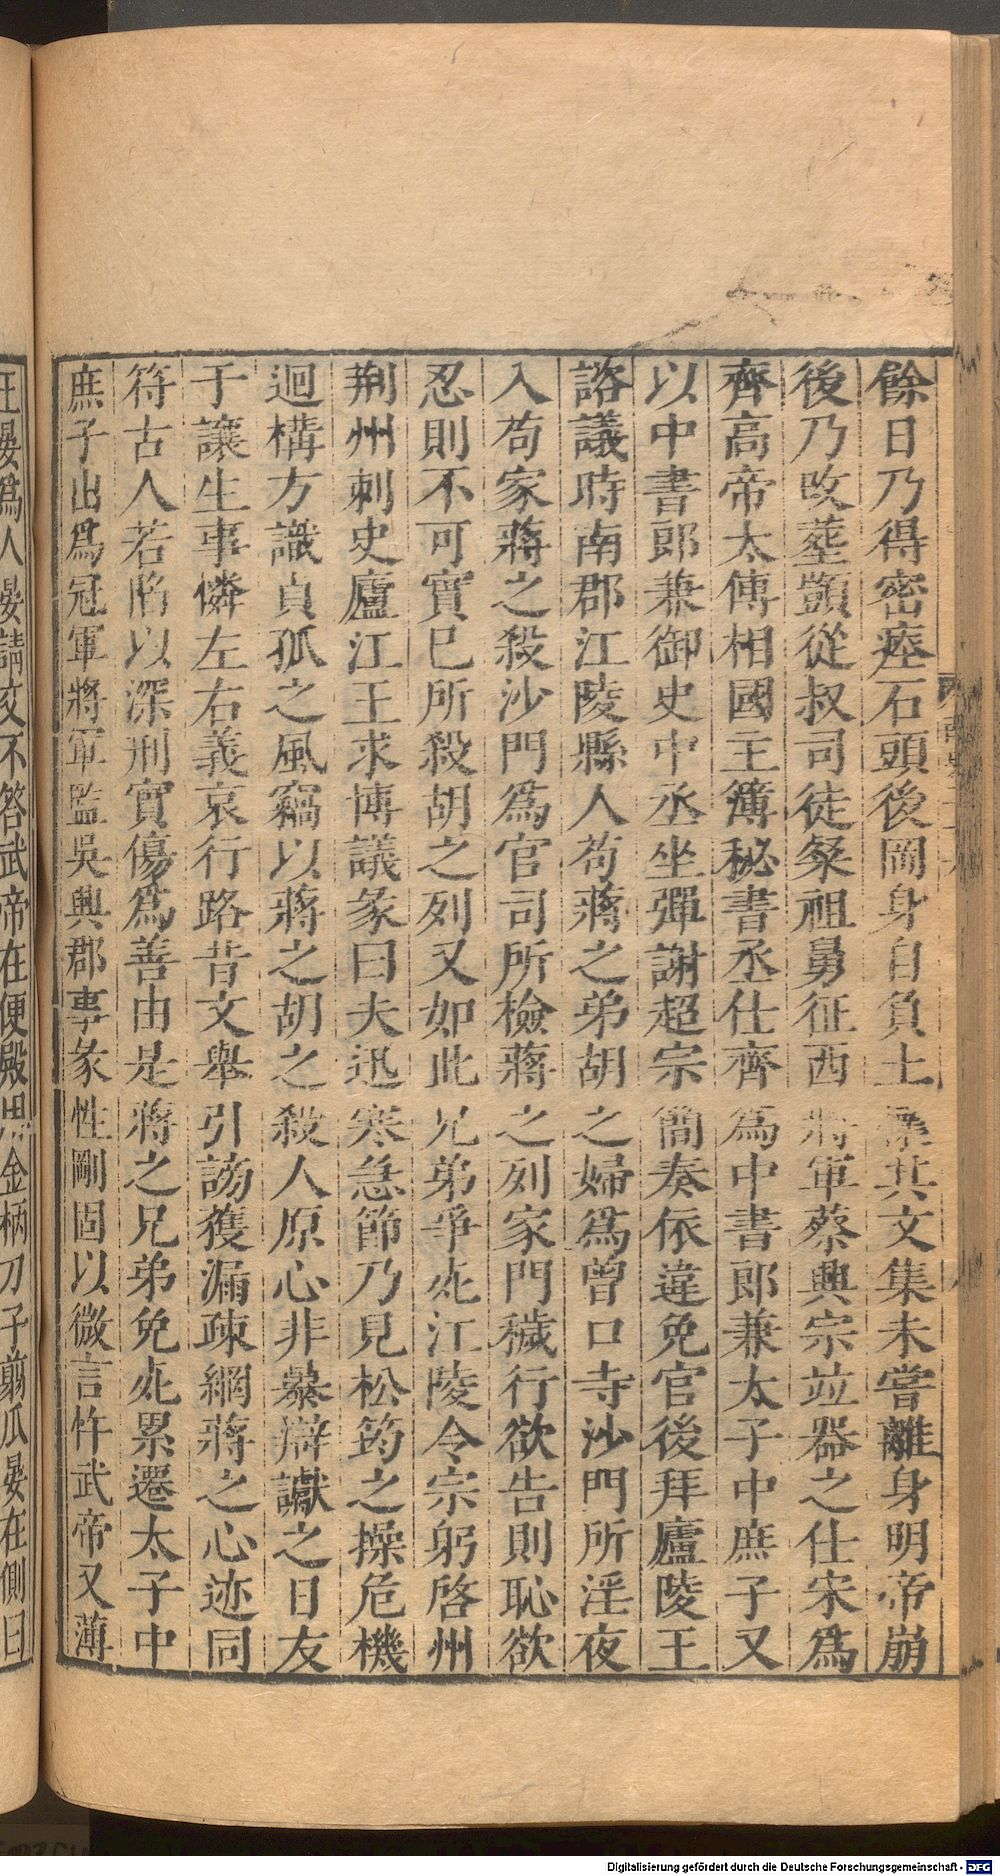 餘日乃得密瘞石頭後岡身自負土懷其文集未嘗離身明帝崩
後乃改葬顗從叔司徒粲祖舅征西將軍蔡興宗竝器之仕宋爲
齊高帝太傅相國主簿秘書丞仕齊爲中書郎兼太子中庶子又
以中書郎兼御史中丞坐彈謝超宗簡奏依違免官後拜廬陵王
諮議時南郡江陵縣人苟蔣之弟胡之婦爲曾口寺沙門所淫夜
入苟家蔣之殺沙門爲官司所檢蔣之列家門穢行欲告則恥欲
忍則不可實巳所殺胡之列又如此兄弟爭死江陵令宗躬啓州
荆州刺史廬江王求博議彖曰夫迅寒急節乃見松筠之操危機
迴構方識貞孤之風竊以蔣之胡之殺人原心非暴辯讞之日友
于讓生事憐左右義哀行路昔文舉引謗獲漏疎網蔣之心迹同
符古人若陷以深刑實傷爲善由是蔣之兄弟免死累遷太子中
庶子出爲冠軍將軍監吳興郡事彖性剛固以微言忤武帝又薄
王晏爲人晏請交不答武帝在便殿用金柄刀子翦瓜晏在側曰
Digitalisierung gefördert durch die Deutsche Forschungsgemeinschaft - DFG